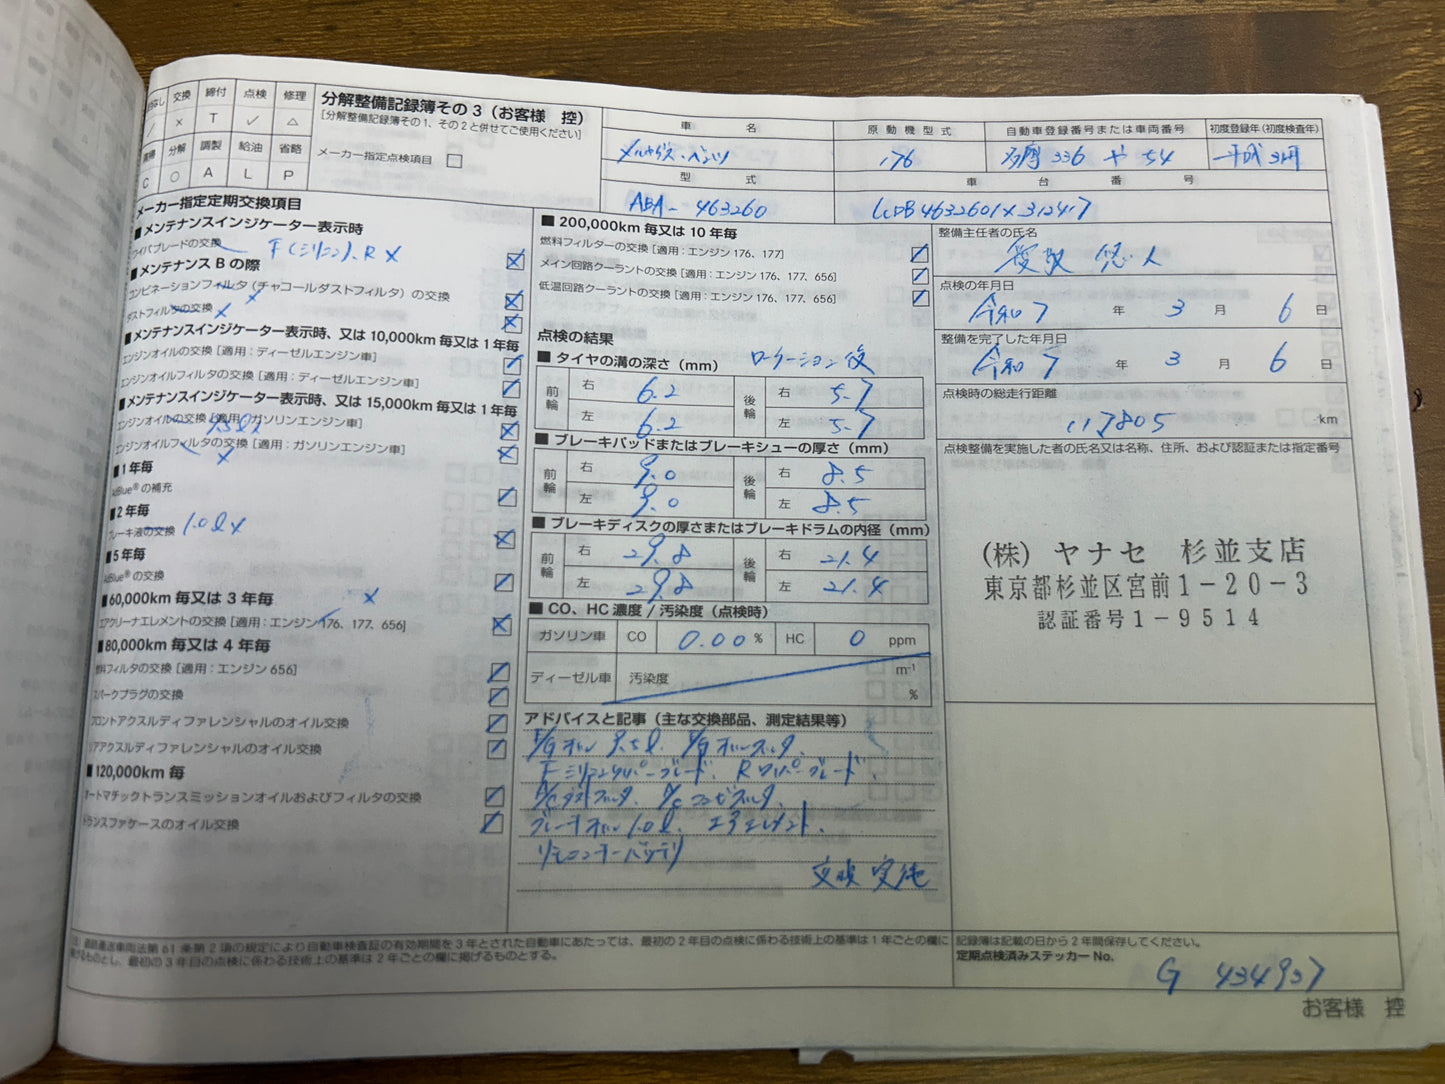 交換 締付 点検 修理
× T ✓ △
分解 調製 給油 省略
C ○ A L P
分解整備記録簿その3（お客様 控）
［分解整備記録簿その1、その2と併せてご使用ください］
メーカー指定点検項目 □
車 名
原 動 機 型 式
自動車登録番号または車両番号
初度登録年（初度検査年）
メルセデス・ベンツ
176
多摩 336 や 54
型 式
車 台 番 号
ABA-463260
WDB4632601X312417
メーカー指定定期交換項目
■メンテナンスインジケーター表示時
ワイパブレードの交換
F(シリコン)、R ×
■メンテナンス B の際
コンビネーションフィルタ（チャコールダストフィルタ）の交換
ダストフィルタの交換
■メンテナンスインジケーター表示時、又は 10,000km 毎又は 1 年毎
エンジンオイルの交換［適用：ディーゼルエンジン車］
エンジンオイルフィルタの交換［適用：ディーゼルエンジン車］
■メンテナンスインジケーター表示時、又は 15,000km 毎又は 1 年毎
エンジンオイルの交換［適用：ガソリンエンジン車］
エンジンオイルフィルタの交換［適用：ガソリンエンジン車］
■1 年毎
AdBlue®の補充
■2 年毎
ブレーキ液の交換 1.0ℓ ×
■5 年毎
AdBlue®の交換
■60,000km 毎又は 3 年毎
エアクリーナエレメントの交換［適用：エンジン 176、177、656］
■80,000km 毎又は 4 年毎
燃料フィルタの交換［適用：エンジン 656］
スパークプラグの交換
フロントアクスルディファレンシャルのオイル交換
リアアクスルディファレンシャルのオイル交換
■120,000km 毎
オートマチックトランスミッションオイルおよびフィルタの交換
トランスファケースのオイル交換
■ 200,000km 毎又は 10 年毎
燃料フィルターの交換［適用：エンジン 176、177］
メイン回路クーラントの交換［適用：エンジン 176、177、656］
低温回路クーラントの交換［適用：エンジン 176、177、656］
点検の結果
■ タイヤの溝の深さ（mm） ローテーション後
前輪 右 6.2 後輪 右 5.7
左 6.2 左 5.7
■ ブレーキパッドまたはブレーキシューの厚さ（mm）
前輪 右 9.0 後輪 右 8.5
左 9.0 左 8.5
■ ブレーキディスクの厚さまたはブレーキドラムの内径（mm）
前輪 右 29.8 後輪 右 21.4
左 29.8 左 21.4
■ CO、HC 濃度 / 汚染度（点検時）
ガソリン車 CO 0.00 % HC 0 ppm
ディーゼル車 汚染度 m⁻¹
%
アドバイスと記事（主な交換部品、測定結果等）
E/G オイル 9.5ℓ、E/G オイルフィルタ、
F シリコンワイパーブレード、R ワイパーブレード、
A/C ダストフィルタ、A/C コンビフィルタ、
ブレーキオイル 1.0ℓ、エアエレメント、
リモコンキーバッテリ
交換 実施
整備主任者の氏名
点検の年月日
令和 7 年 3 月 6 日
整備を完了した年月日
令和 7 年 3 月 6 日
点検時の総走行距離
117805 km
点検整備を実施した者の氏名又は名称、住所、および認証または指定番号
（株） ヤナセ 杉並支店
東京都杉並区宮前1－20－3
認証番号1－9514
(注) 道路運送車両法第 61 条第 2 項の規定により自動車検査証の有効期間を 3 年とされた自動車にあたっては、最初の 2 年目の点検に係わる技術上の基準は 1 年ごとの欄に
掲げるものとし、最初の 3 年目の点検に係わる技術上の基準は 2 年ごとの欄に掲げるものとする。
記録簿は記載の日から 2 年間保存してください。
定期点検済みステッカー No.
G 434937
お客様 控